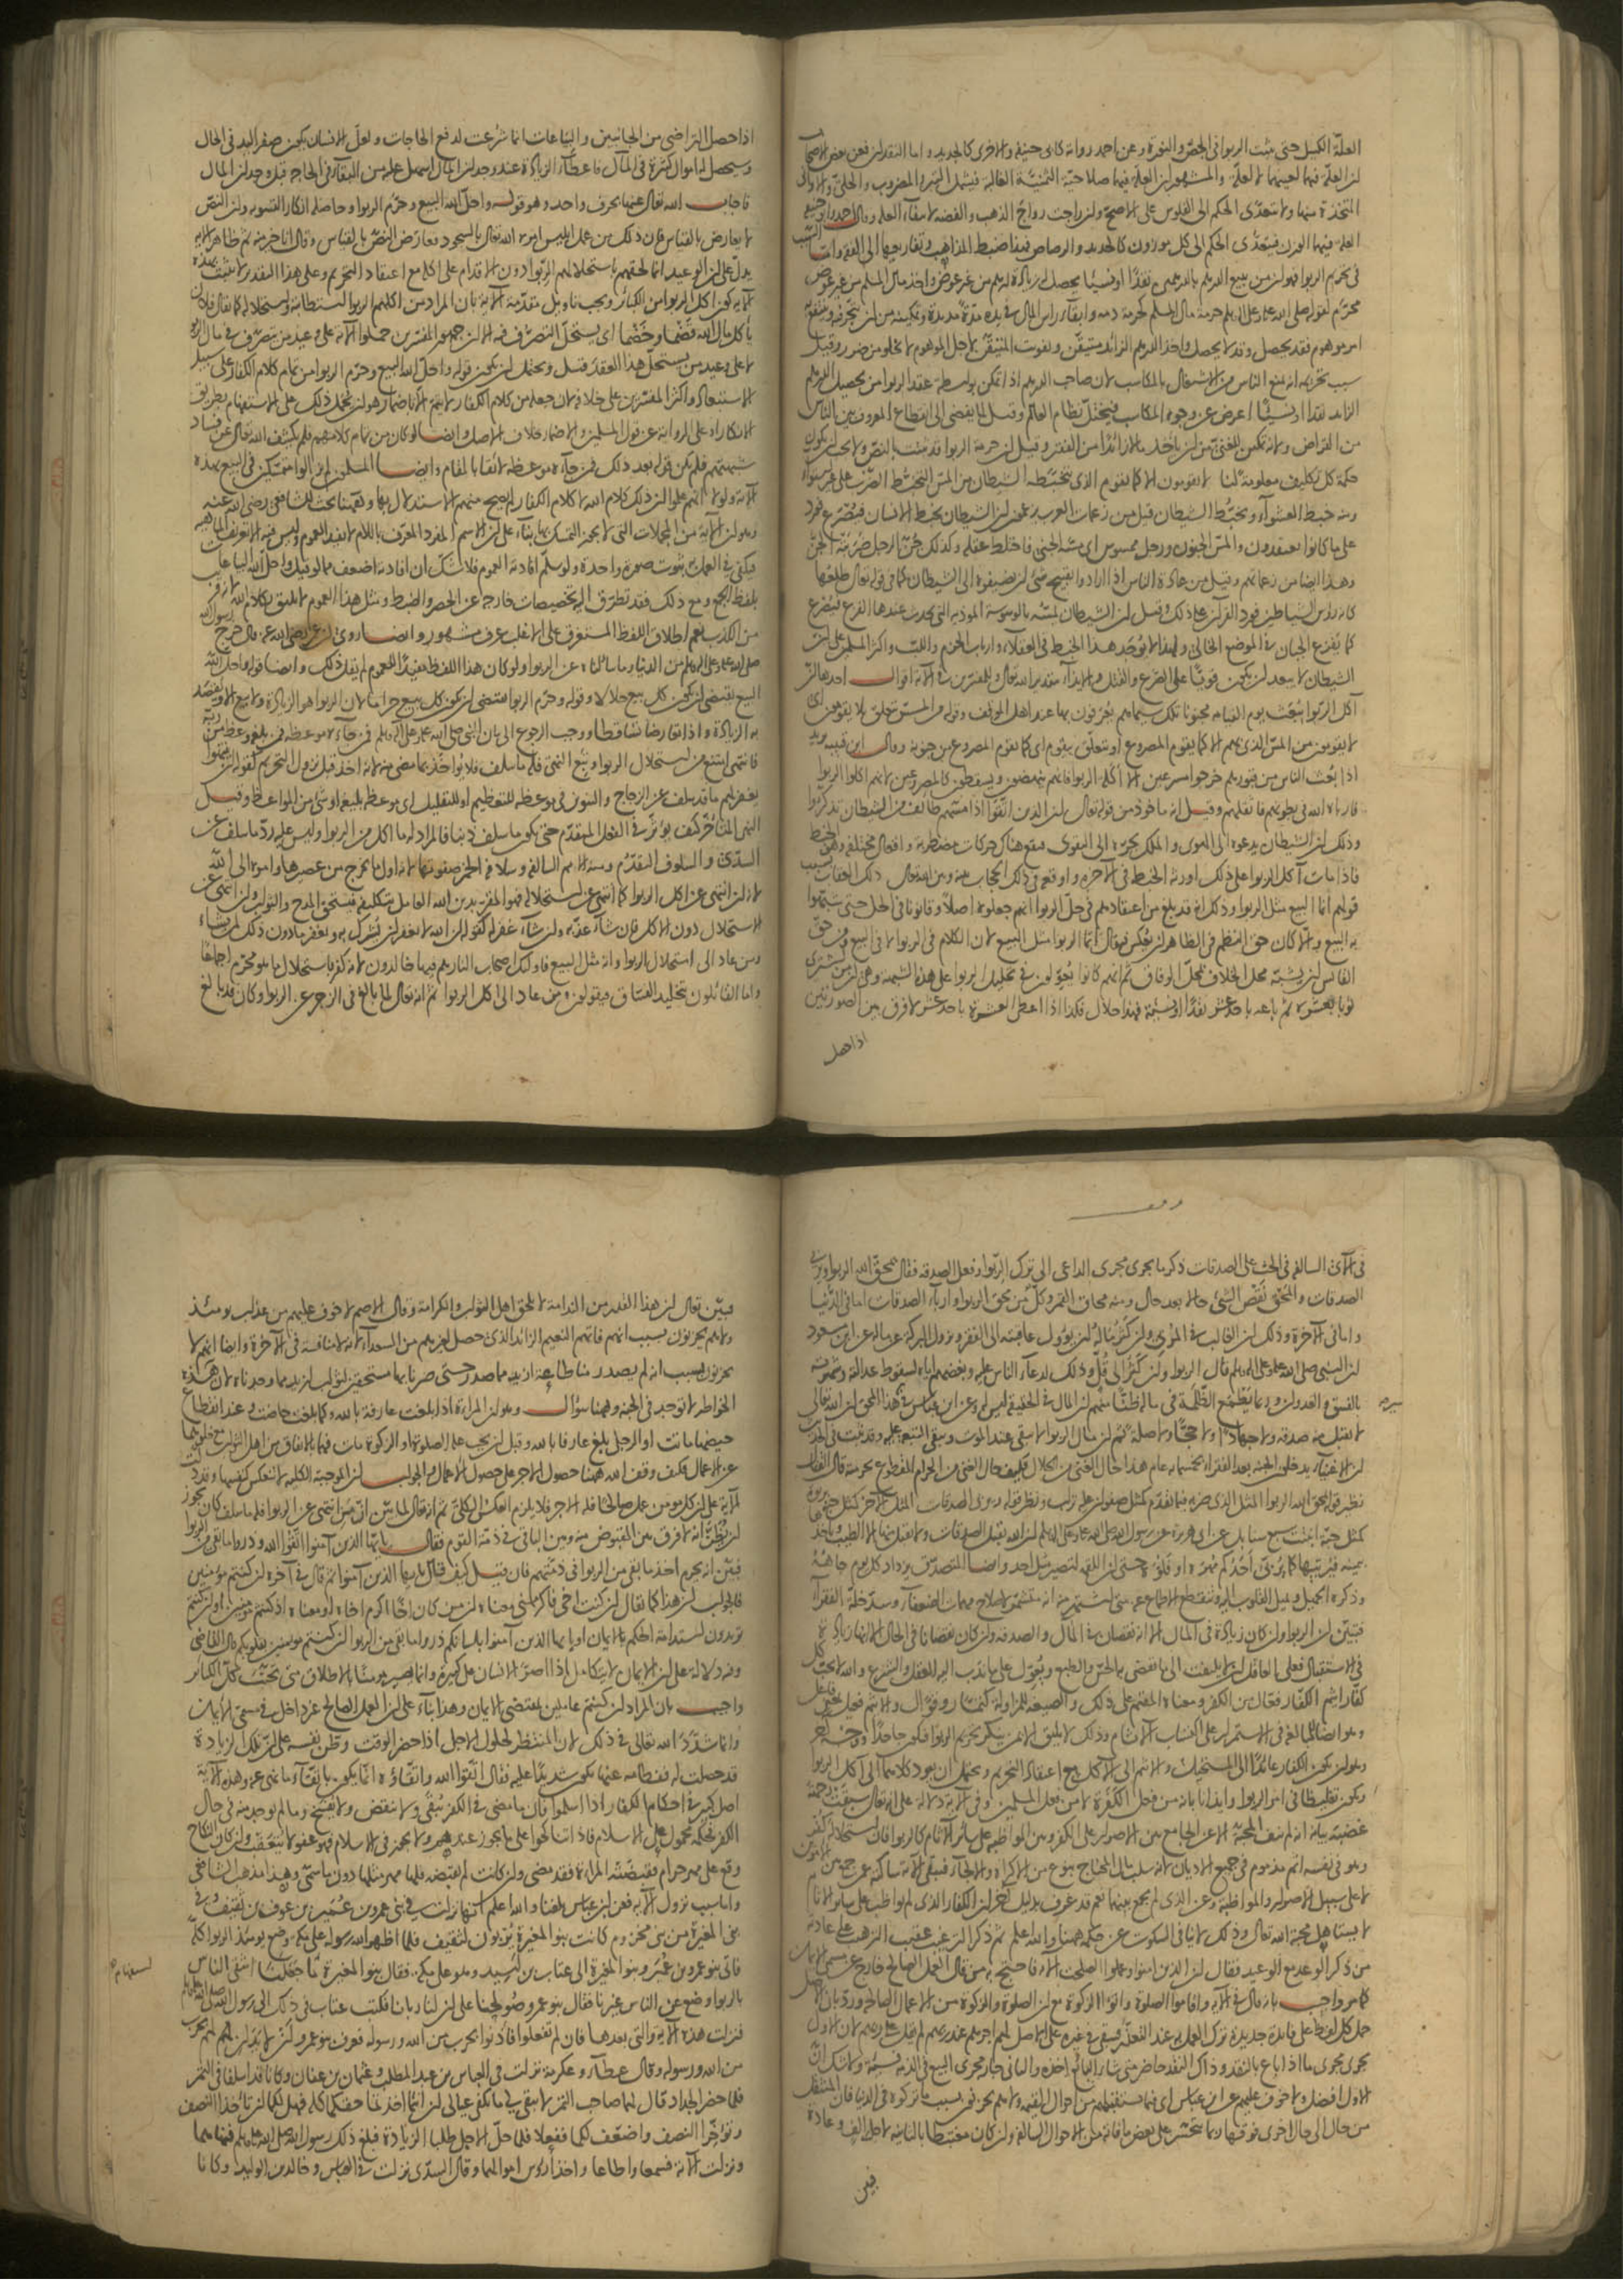 العلة الكيل حتى يثبت الربوا في الجص والنورة وعن احمد روايتان كابي حنيفة والاخرى كالجديد واما النقدان فعن بعض الاصحاب
ان العلة فيهما لعينهما لا لعلة والمشهور ان العلة فيهما صلاحية الثمنية الغالبة فيشمل التبر والمضروب والحلي والاواني
المتخذة منهما ولا يتعدى الحكم الى الفلوس على الاصح وان راجت رواج الذهب والفضة لانتفاء العلة وقال احمد وابو حنيفة
العلة فيهما الوزن فيتعدى الحكم الى كل موزون كالحديد والرصاص فهذا ضبط المذاهب وتفاريعها الى الفقه واما السبب
في تحريم الربوا فهو ان من يبيع الدرهم بالدرهمين نقدا او نسيئا يحصل له زيادة درهم من غير عوض واخذ مال المسلم من غير عوض
محرم لقوله صلى الله عليه وسلم حرمة مال المسلم كحرمة دمه وابقاء راس المال في يده مدة مديدة وتمكينه من ان يتجر فيه وينتفع به
امر موهوم فقد يحصل وقد لا يحصل واخذ الدرهم الزائد متيقن وتفويت المتيقن لاجل الموهوم لا يخلو من ضرر وقيل
سبب تحريمه انه يمنع الناس من الاشتغال بالمكاسب لان صاحب الدرهم اذا تمكن بواسطة عقد الربوا من تحصيل الدرهم
الزائد نقدا او نسيئا اعرض عن وجوه المكاسب فيختل نظام العالم وقيل لما يفضي الى انقطاع المعروف بين الناس
من القراض ولانه تمكين للغني من ان ياخذ مالا زائدا من الفقير وقيل ان حرمة الربوا قد ثبتت بالنص ولا يجب ان يكون
حكمة كل تكليف معلومة لنا لا يقومون الا كما يقوم الذي يتخبطه الشيطان من المس التخبط الضرب على غير استواء
ومنه خبط العشواء وتخبط الشيطان قيل من زعمات العرب يزعمون ان الشيطان يخبط الانسان فيصرع فورد
على ما كانوا يعتقدون والمس الجنون ورجل ممسوس اي مسه الجني فاختلط عقله وكذلك جن الرجل ضربته الجن
وهذا ايضا من زعماتهم وقيل من عادة الناس اذا ارادوا تقبيح شئ ان يضيفوه الى الشيطان كما في قوله تعالى طلعها
كانه رؤس الشياطين فورد القرآن على ذلك وقيل ان الشيطان يمسه بالوسوسة الموذية التي يحدث عندها الفزع فيصرع
كما يفزع الجبان في الموضع الخالي ولهذا لا يوجد هذا الخبط في العقلاء وارباب الحزم واللب واكثر المسلمين على ان
الشيطان لا يبعد ان يكون قويا على الصرع والقتل والايذاء بتقدير الله تعالى وللمفسرين في الآية اقوال احدها ان
آكل الربوا يبعث يوم القيامة مجنونا تلك سيماهم يعرفون بها عند اهل الموقف وقوله من المس يتعلق بلا يقومون اي
لا يقومون من المس الذي بهم الا كما يقوم المصروع او يتعلق بيقوم اي كما يقوم المصروع من جنونه وقال ابن قتيبة يريد
اذا بعث الناس من قبورهم خرجوا مسرعين الا آكلة الربوا فانهم ينهضون ويسقطون كالمصروعين لانهم اكلوا الربوا
فارباه الله في بطونهم فاثقلهم وقيل انه ماخوذ من قوله تعالى ان الذين اتقوا اذا مسهم طائف من الشيطان تذكروا
وذلك ان الشيطان يدعوه الى الهوى والملك يجره الى التقوى فيقع هناك حركات مضطربة وافعال مختلفة وهو الخبط
فاذا مات آكل الربوا على ذلك اورثه الخبط في الآخرة واوقعه في ذلك الحجاب بينه وبين الله تعالى ذلك العقاب بسبب
قولهم انما البيع مثل الربوا وذلك انه قد بلغ من اعتقادهم في حل الربوا انهم جعلوه اصلا وقانونا في الحل حتى شبهوا
به البيع والا كان حق النظم في الظاهر ان يعكس فيقال انما الربوا مثل البيع لان الكلام في الربوا لا في البيع ومن حق
القائس ان يشبه محل الخلاف بمحل الوفاق ثم انهم كانوا يعولون في تحليل الربوا على هذه الشبهة وهي ان من اشترى
ثوبا بعشرة ثم باعه باحد عشر نقدا او نسيئة فهذا حلال فكذا اذا اعطى العشرة باحد عشر لا فرق بين الصورتين
اذا حصل
اذا حصل التراضي من الجانبين والبياعات انما شرعت لدفع الحاجات ولعل الانسان يكون صفر اليد في الحال
وسيحصل له اموال كثيرة في المآل فاعطاء الزيادة عند وجدان المال اسهل عليه من البقاء في الحاجة قبل وجدان المال
فاجاب الله تعالى عنها بحرف واحد وهو قوله واحل الله البيع وحرم الربوا وحاصله انكار التسوية وان النص
لا يعارض بالقياس فان ذلك من عمل ابليس امره الله تعالى بالسجود فعارض النص بالقياس وقال انا خير منه ثم ظاهر الآية
يدل على ان الوعيد انما لحقهم باستحلالهم الربوا دون الاقدام على اكله مع اعتقاد التحريم وعلى هذا التقدير لا يثبت بهذه
الآية كون اكل الربوا من الكبائر ويجب تاويل مقدمة الآية بان المراد من اكلهم الربوا استطابته واستحلاله كما يقال فلان
يأكل مال الله قضما وخضما اي يستحل التصرف فيه الا ان جمهور المفسرين حملوا الآية على وعيد من يتصرف في مال الربوا
لا على وعيد من يستحل هذا العقد وقيل ويحتمل ان يكون قوله واحل الله البيع وحرم الربوا من تمام كلام الكفار على سبيل
الاستبعاد واكثر المفسرين على خلافه لان جعله من كلام الكفار لا يتم الا باضمار هو ان يحمل ذلك على الاستفهام بطريق
الانكار او على الرواية عن قول المسلمين والاضمار خلاف الاصل وايضا لو كان من تمام كلامهم فلم يكشف الله تعالى عن فساد
شبهتهم فلم يكن قوله بعد ذلك فمن جاءه موعظة لائقا بالمقام وايضا المسلمون لم يزالوا متمسكين في البيع بهذه
الآية ولولا انهم علموا ان ذلك كلام الله لا كلام الكفار لم يصح منهم الاستدلال بها وههنا بحث للشافعي رضي الله عنه
وهو ان الآية من المجملات التي لا يجوز التمسك بها بناء على ان الاسم المفرد المعرف باللام لا يفيد العموم وليس فيه الا تعريف الماهية
فيكفي في العمل به ثبوت صورة واحدة ولو سلم افادته العموم فلا شك ان افادته اضعف مما لو قيل واحل الله البياعات
بلفظ الجمع ومع ذلك فقد تطرق اليه تخصيصات خارجة عن الحصر والضبط ومثل هذا العموم لا يليق بكلام الله لانه قرب
من الكذب نعم اطلاق اللفظ المستغرق على الاغلب عرف مشهور وايضا روي ان عمر رضي الله عنه قال خرج رسول الله
صلى الله عليه وعلى آله وسلم من الدنيا وما سالناه عن الربوا ولو كان هذا اللفظ مفيدا للعموم لم يقل ذلك وايضا قوله واحل الله
البيع يقتضي ان يكون كل بيع حلالا وقوله وحرم الربوا يقتضي ان يكون كل بيع حراما لان الربوا هو الزيادة ولا بيع الا ويقصد
به الزيادة واذا تعارضا تساقطا ووجب الرجوع الى بيان النبي صلى الله عليه وعلى آله وسلم فمن جاءه موعظة فمن بلغه وعظ من ربه
فانتهى امتنع من استحلال الربوا وتبع النهي فله ما سلف فلا يؤاخذ بما مضى منه لانه اخذ قبل نزول التحريم كقوله ان ينتهوا
يغفر لهم ما قد سلف عن الزجاج والتنوين في موعظة للتعظيم او للتقليل اي موعظة بليغة او شئ من المواعظ وقيل
النهي المتاخر كيف يؤثر في الفعل المتقدم حتى يكون ما سلف ذنبا فالمراد له ما اكل من الربوا وليس عليه رد ما سلف عن
السدي والسلوف التقدم ومنه الامم السالفة وسلافة الخمر صفوتها لانه اول ما يخرج من عصيرها وامره الى الله
لانه ان انتهى عن اكل الربوا كما انتهى عن استحلاله فهو المقر بدين الله العامل بتكليفه فيستحق المدح والثواب وان انتهى عن
الاستحلال دون الاكل فان شاء عذبه وان شاء غفر له كقوله ان الله لا يغفر ان يشرك به ويغفر ما دون ذلك لمن يشاء
ومن عاد الى استحلال الربوا وانه مثل البيع فاولئك اصحاب النار هم فيها خالدون لانه كفر باستحلال ما هو محرم اجماعا
واما القائلون بتخليد الفساق فيقولون ومن عاد الى اكل الربوا ثم انه تعالى لما بالغ في الزجر عن الربوا وكان قد بالغ
في الآي السالفة في الحث على الصدقات ذكر ما يجري مجرى الداعي الى ترك الربوا وفعل الصدقة فقال يمحق الله الربوا ويربي
الصدقات والمحق نقص الشئ حالا بعد حال ومنه محاق القمر وكل من محق الربوا وارباء الصدقات اما في الدنيا
واما في الآخرة وذلك ان الغالب في المربي وان كثر ماله ان يؤول عاقبته الى الفقر وتزول البركة عن ماله عن ابن مسعود
ان النبي صلى الله عليه وعلى آله وسلم قال الربوا وان كثر الى قل وذلك لدعاء الناس عليه وبغضهم اياه لسقوط عدالته وشهرته
بالفسق والعدوان وربما يطمع الظلمة في ماله ظنا منهم ان المال في الحقيقة ليس له وعن ابن عباس في هذا المحق ان الله تعالى
لا يقبل منه صدقة ولا جهادا ولا حجا ولا صلة ثم ان مال الربوا لا يبقى عند الموت ويبقى التبعة عليه وقد ثبت في الحديث
ان الاغنياء يدخلون الجنة بعد الفقراء بخمسمائة عام هذا حال الغني من الحلال فكيف حال الغني من الحرام المقطوع بحرمته قال القفال
نظير قوله يمحق الله الربوا المثل الذي ضربه فيما تقدم كمثل صفوان عليه تراب ونظير قوله ويربي الصدقات المثل الآخر كمثل جنة بربوة
كمثل حبة انبتت سبع سنابل عن ابي هريرة عن رسول الله صلى الله عليه وعلى آله وسلم ان الله يقبل الصدقات ولا يقبل منها الا الطيب وياخذها
بيمينه فيربيها كما يربي احدكم مهره او فلوه حتى ان اللقمة لتصير مثل احد وايضا المتصدق يزداد كل يوم جاهه
وذكره الجميل وميل القلوب اليه وتنقطع الاطماع عنه متى اشتهر منه انه متشمر لاصلاح مهمات الضعفاء وسد خلة الفقراء
فتبين ان الربوا وان كان زيادة في المال الا انه نقصان في المآل والصدقة وان كان نقصانا في الحال الا انها زيادة
في الاستقبال فعلى العاقل ان لا يلتفت الى ما يقضي به الحس والطبع ويعول على ما ندب اليه العقل والشرع والله لا يحب كل
كفار اثيم الكفار فعال من الكفر ومعناه المقيم على ذلك والصيغة للمزاولة كتمار وقوال والاثيم فعيل بمعنى فاعل
وهو ايضا للمبالغة في الاستمرار على اكتساب الآثام وذلك لا يليق الا بمن ينكر تحريم الربوا فيكون جاحدا ووجه آخر
وهو ان يكون الكفار عائدا الى المستحل والاثيم الى الآكل مع اعتقاد التحريم ويحتمل ان يعود كلاهما الى آكل الربوا
ويكون تغليظا في امر الربوا وايذانا بانه من فعل الكفرة لا من فعل المسلمين وفي الآية دلالة على انه تعالى سبقت رحمته
من ذكر الوعد مع الوعيد فقال ان الذين امنوا وعملوا الصلحت الآية فاحتج به من قال العمل الصالح خارج عن مسمى الايمان
كما مر واجيب بانه قال في الآية واقاموا الصلوة واتوا الزكوة مع ان الصلوة والزكوة من الاعمال الصالحة ورد بان الاصل
حمل كل لفظ على فائدة جديدة ترك العمل به عند التعذر فيبقى في غيره على الاصل لهم اجرهم عند ربهم لم يقل على ربهم لان الاول
يجري مجرى ما اذا باع بالنقد وذاك النقد حاضر متى شاء البائع اخذه والثاني جار مجرى البيع في الذمة نسيئة ولا شك ان
الاول افضل ولا خوف عليهم عن ابن عباس اي فيما يستقبلهم من احوال القيمة ولا هم يحزنون بسبب ما تركوه في الدنيا فان المنتقل
من حال الى حال اخرى فوقها ربما يتحسر على بعض ما فاته من الاحوال السالفة وان كان مغتبطا بالثانية لاجل الف وعادة
فبين
فبين تعالى ان هذا القدر من الندامة لا يلحق اهل الثواب والكرامة وقال الاصم لا خوف عليهم من عذاب يومئذ
ولا هم يحزنون بسبب انهم فاتهم النعيم الزائد الذي حصل لغيرهم من السعداء لانه لا منافسة في الآخرة وايضا انهم لا
يحزنون بسبب انه لم يصدر منا طاعة ازيد مما صدر حتى صرنا بها مستحقين لثواب ازيد مما وجدناه لان هذه
الخواطر لا توجد في الجنة وههنا سؤال وهو ان المراة اذا بلغت عارفة بالله وكما بلغت حاضت وعند انقطاع
حيضها ماتت او الرجل بلغ عارفا بالله وقبل ان يجب عليه الصلوة والزكوة مات فهما بالاتفاق من اهل الثواب مع خلوهما
عن الاعمال فكيف وقف الله ههنا حصول الاجر على حصول الاعمال والجواب ان الموجبة الكلية لا تنعكس كنفسها وقد دلت
الآية على ان كل مؤمن عمل صالحا فله الاجر فلا يلزم العكس الكلي ثم انه قال لما بين ان من انتهى عن الربوا فله ما سلف كان يجوز
ان يظن انه لا فرق بين المقبوض منه وبين الباقي في ذمة القوم فقال يا ايها الذين آمنوا اتقوا الله وذروا ما بقي من الربوا
فبين انه يحرم اخذ ما بقي من الربوا في ذمتهم فان قيل كيف قال يا ايها الذين آمنوا ثم قال في آخره ان كنتم مؤمنين
فالجواب ان هذا كما يقال ان كنت اخي فاكرمني معناه ان من كان اخا اكرم اخاه او معناه اذ كنتم مؤمنين او ان كنتم
تريدون استدامة الحكم بالايمان او يا ايها الذين آمنوا بلسانكم ذروا ما بقي من الربوا ان كنتم مؤمنين بقلوبكم قال القاضي
وفيه دلالة على ان الايمان لا يتكامل اذا اصر الانسان على كبيرة وانما يصير مؤمنا بالاطلاق متى تجنب كل الكبائر
واجيب بان المراد ان كنتم عاملين بمقتضى الايمان وهذا بناء على ان العمل الصالح غير داخل في مسمى الايمان
وانما شدد الله تعالى في ذلك لان المنتظر لحلول الاجل اذا حضر الوقت وطن نفسه على ان تلك الزيادة
قد حصلت له ففطامه عنها يكون شديدا عليه فقال اتقوا الله واتقاؤه انما يكون باتقاء ما نهى عنه وهذه الآية
اصل كبير في احكام الكفار اذا اسلموا فان ما مضى في الكفر يبقى ولا ينقض ولا يفسخ وما لم يوجد منه في حال
الكفر فحكمه محمول على الاسلام فاذا تناكحوا على ما يجوز عندهم ولا يجوز في الاسلام فهو عفو لا يتعقب وان كان النكاح
وقع على مهر حرام فقبضته المراة فقد مضى وان كانت لم تقبضه فلها مهر مثلها دون ما سمى وهذا مذهب الشافعي
واما سبب نزول الآية فعن ابن عباس بلغنا والله اعلم انها نزلت في بني عمرو بن عمير بن عوف من ثقيف وفي
بني المغيرة من بني مخزوم كانت بنو المغيرة يربون لثقيف فلما اظهر الله رسوله على مكة وضع يومئذ الربوا كله
فاتى بنو عمرو بن عمير وبنو المغيرة الى عتاب بن اسيد وهو على مكة فقال بنو المغيرة ما جعلنا اشقى الناس
بالربوا وضع عن الناس غيرنا فقال بنو عمرو صولحنا على ان لنا ربانا فكتب عتاب في ذلك الى رسول الله صلى الله عليه وسلم
فنزلت هذه الآية والتي بعدها فان لم تفعلوا فأذنوا بحرب من الله ورسوله فعرف بنو عمرو ان لا يدان لهم بحرب
من الله ورسوله وقال عطاء وعكرمة نزلت في العباس بن عبد المطلب وعثمان بن عفان وكانا قد اسلفا في التمر
فلما حضر الجداد قال لهما صاحب التمر لا يبقى لي ما يكفي عيالي ان انتما اخذتما حقكما كله فهل لكما ان تأخذا النصف
وتؤخرا النصف واضعف لكما ففعلا فلما حل الاجل طلبا الزيادة فبلغ ذلك رسول الله صلى الله عليه وسلم فنهاهما
ونزلت الآية فسمعا واطاعا واخذا رؤس اموالهما وقال السدي نزلت في العباس وخالد بن الوليد وكانا